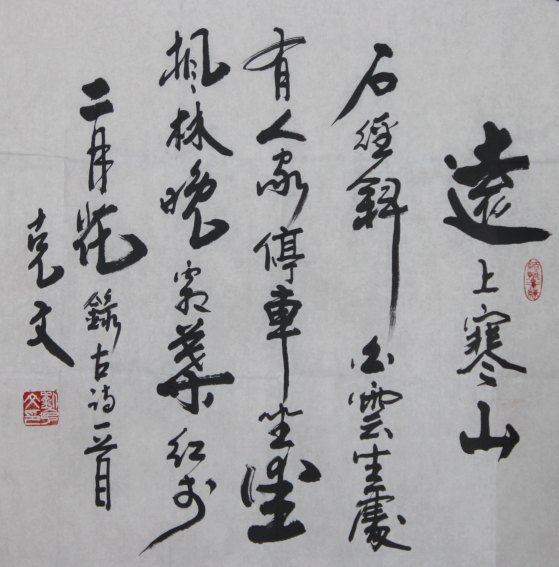 遠上寒山
石徑斜白雲生處
有人家停車坐愛
楓林晚霜葉紅於
二月花錄古詩一首
克文